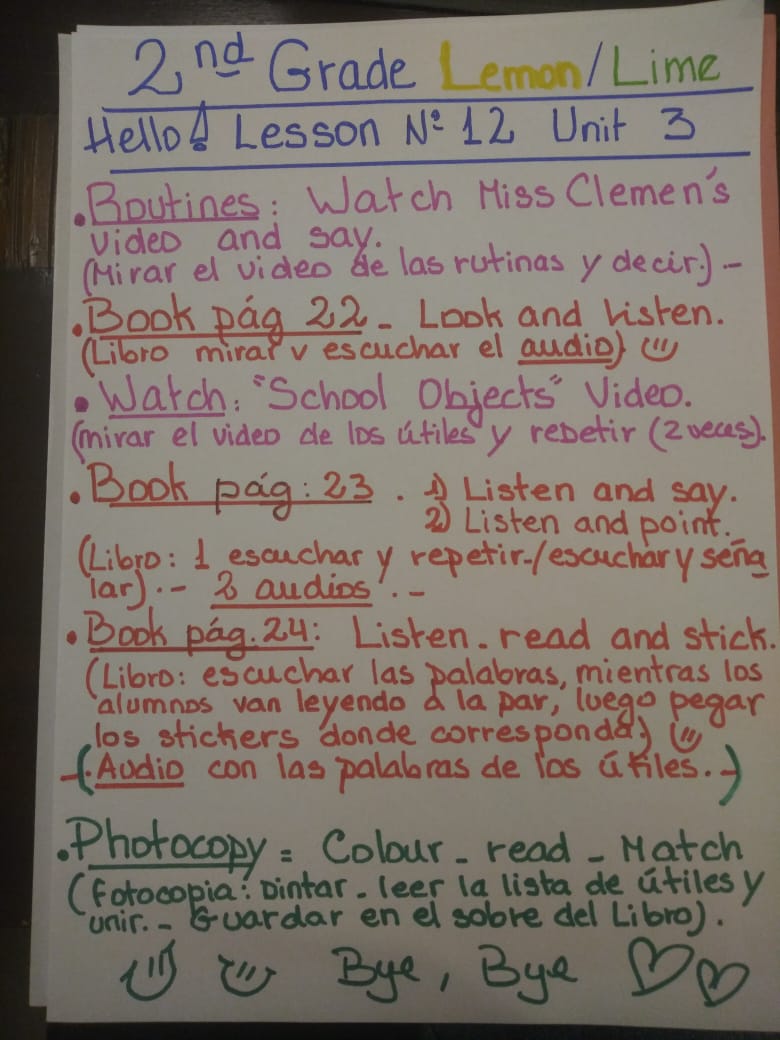 2nd Grade Lemon/Lime
Hello! Lesson Nº 12 Unit 3
• Routines: Watch Miss Clemen's
video and say.
(Mirar el video de las rutinas y decir.) -
• Book pág 22 - Look and listen.
(Libro mirar y escuchar el audio)
• Watch: "School Objects" Video.
(mirar el video de los útiles y repetir (2 veces).
• Book pág: 23 . 1) Listen and say.
2) Listen and point.
(Libro: 1 escuchar y repetir-/escuchar y seña
lar).- 2 audios .-
• Book pág. 24: Listen - read and stick.
(Libro: escuchar las palabras, mientras los
alumnos van leyendo a la par, luego pegar
los stickers donde corresponda.)
-(. Audio con las palabras de los útiles. -)
• Photocopy = Colour - read - Match
(Fotocopia: pintar - leer la lista de útiles y
unir. - Guardar en el sobre del Libro).
Bye, Bye